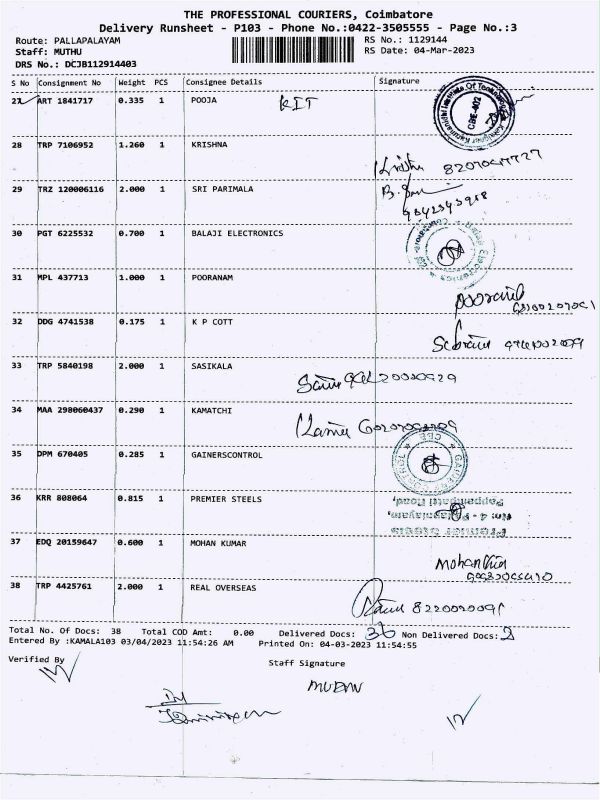 THE PROFESSIONAL COURIERS, Coimbatore
Delivery Runsheet - P103 - Phone No.:0422-3505555 - Page No.:3
Route: PALLAPALAYAM RS No.: 1129144
Staff: MUTHU RS Date: 04-Mar-2023
DRS No.: DCJB112914403
S No Consignment No Weight PCS Consignee Details Signature
27 ART 1841717 0.335 1 POOJA KIT
28 TRP 7106952 1.260 1 KRISHNA
29 TRZ 120006116 2.000 1 SRI PARIMALA
30 PGT 6225532 0.700 1 BALAJI ELECTRONICS
31 MPL 437713 1.000 1 POORANAM
32 DDG 4741538 0.175 1 K P COTT
33 TRP 5840198 2.000 1 SASIKALA
34 MAA 298060437 0.290 1 KAMATCHI
35 DPM 670405 0.285 1 GAINERSCONTROL
36 KRR 808064 0.815 1 PREMIER STEELS
Pappampatti Road,
Premier Steels
37 EDQ 20159647 0.600 1 MOHAN KUMAR
38 TRP 4425761 2.000 1 REAL OVERSEAS
Total No. Of Docs: 38 Total COD Amt: 0.00 Delivered Docs: 36 Non Delivered Docs: 2
Entered By :KAMALA103 03/04/2023 11:54:26 AM Printed On: 04-03-2023 11:54:55
Verified By Staff Signature